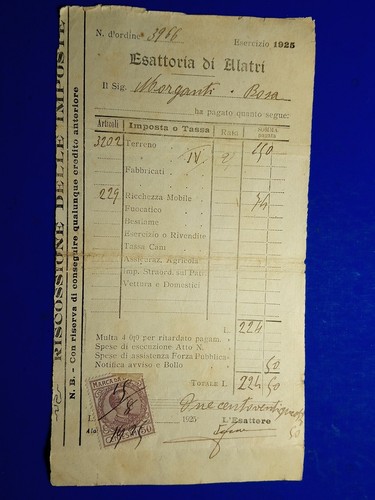 RISCOSSIONE DELLE IMPOSTE
N. B. - Con riserva di conseguire qualunque credito anteriore
N. d'ordine 3966 Esercizio 1925
Esattoria di Alatri
Il Sig. Morganti Rosa
ha pagato quanto segue:
Articoli Imposta o Tassa Rate SOMMA PAGATA
3202 Terreno 150
" IV
Fabbricati
"
229 Ricchezza Mobile 74
Fuocatico
Bestiame
Esercizio o Rivendite
Tassa Cani
Assicuraz. Agricola
Imp. Straord. sul Pat.
Vettura e Domestici
L. 224
Multa 4 0/0 per ritardato pagam.
Spese di esecuzione Atto N.
Spese di assistenza Forza Pubblica
Notifica avviso e Bollo 50
TOTALE L. 224 50
MARCA DA
15
8
1925
50
Duecentoventiquattro
50
1925 L'Esattore